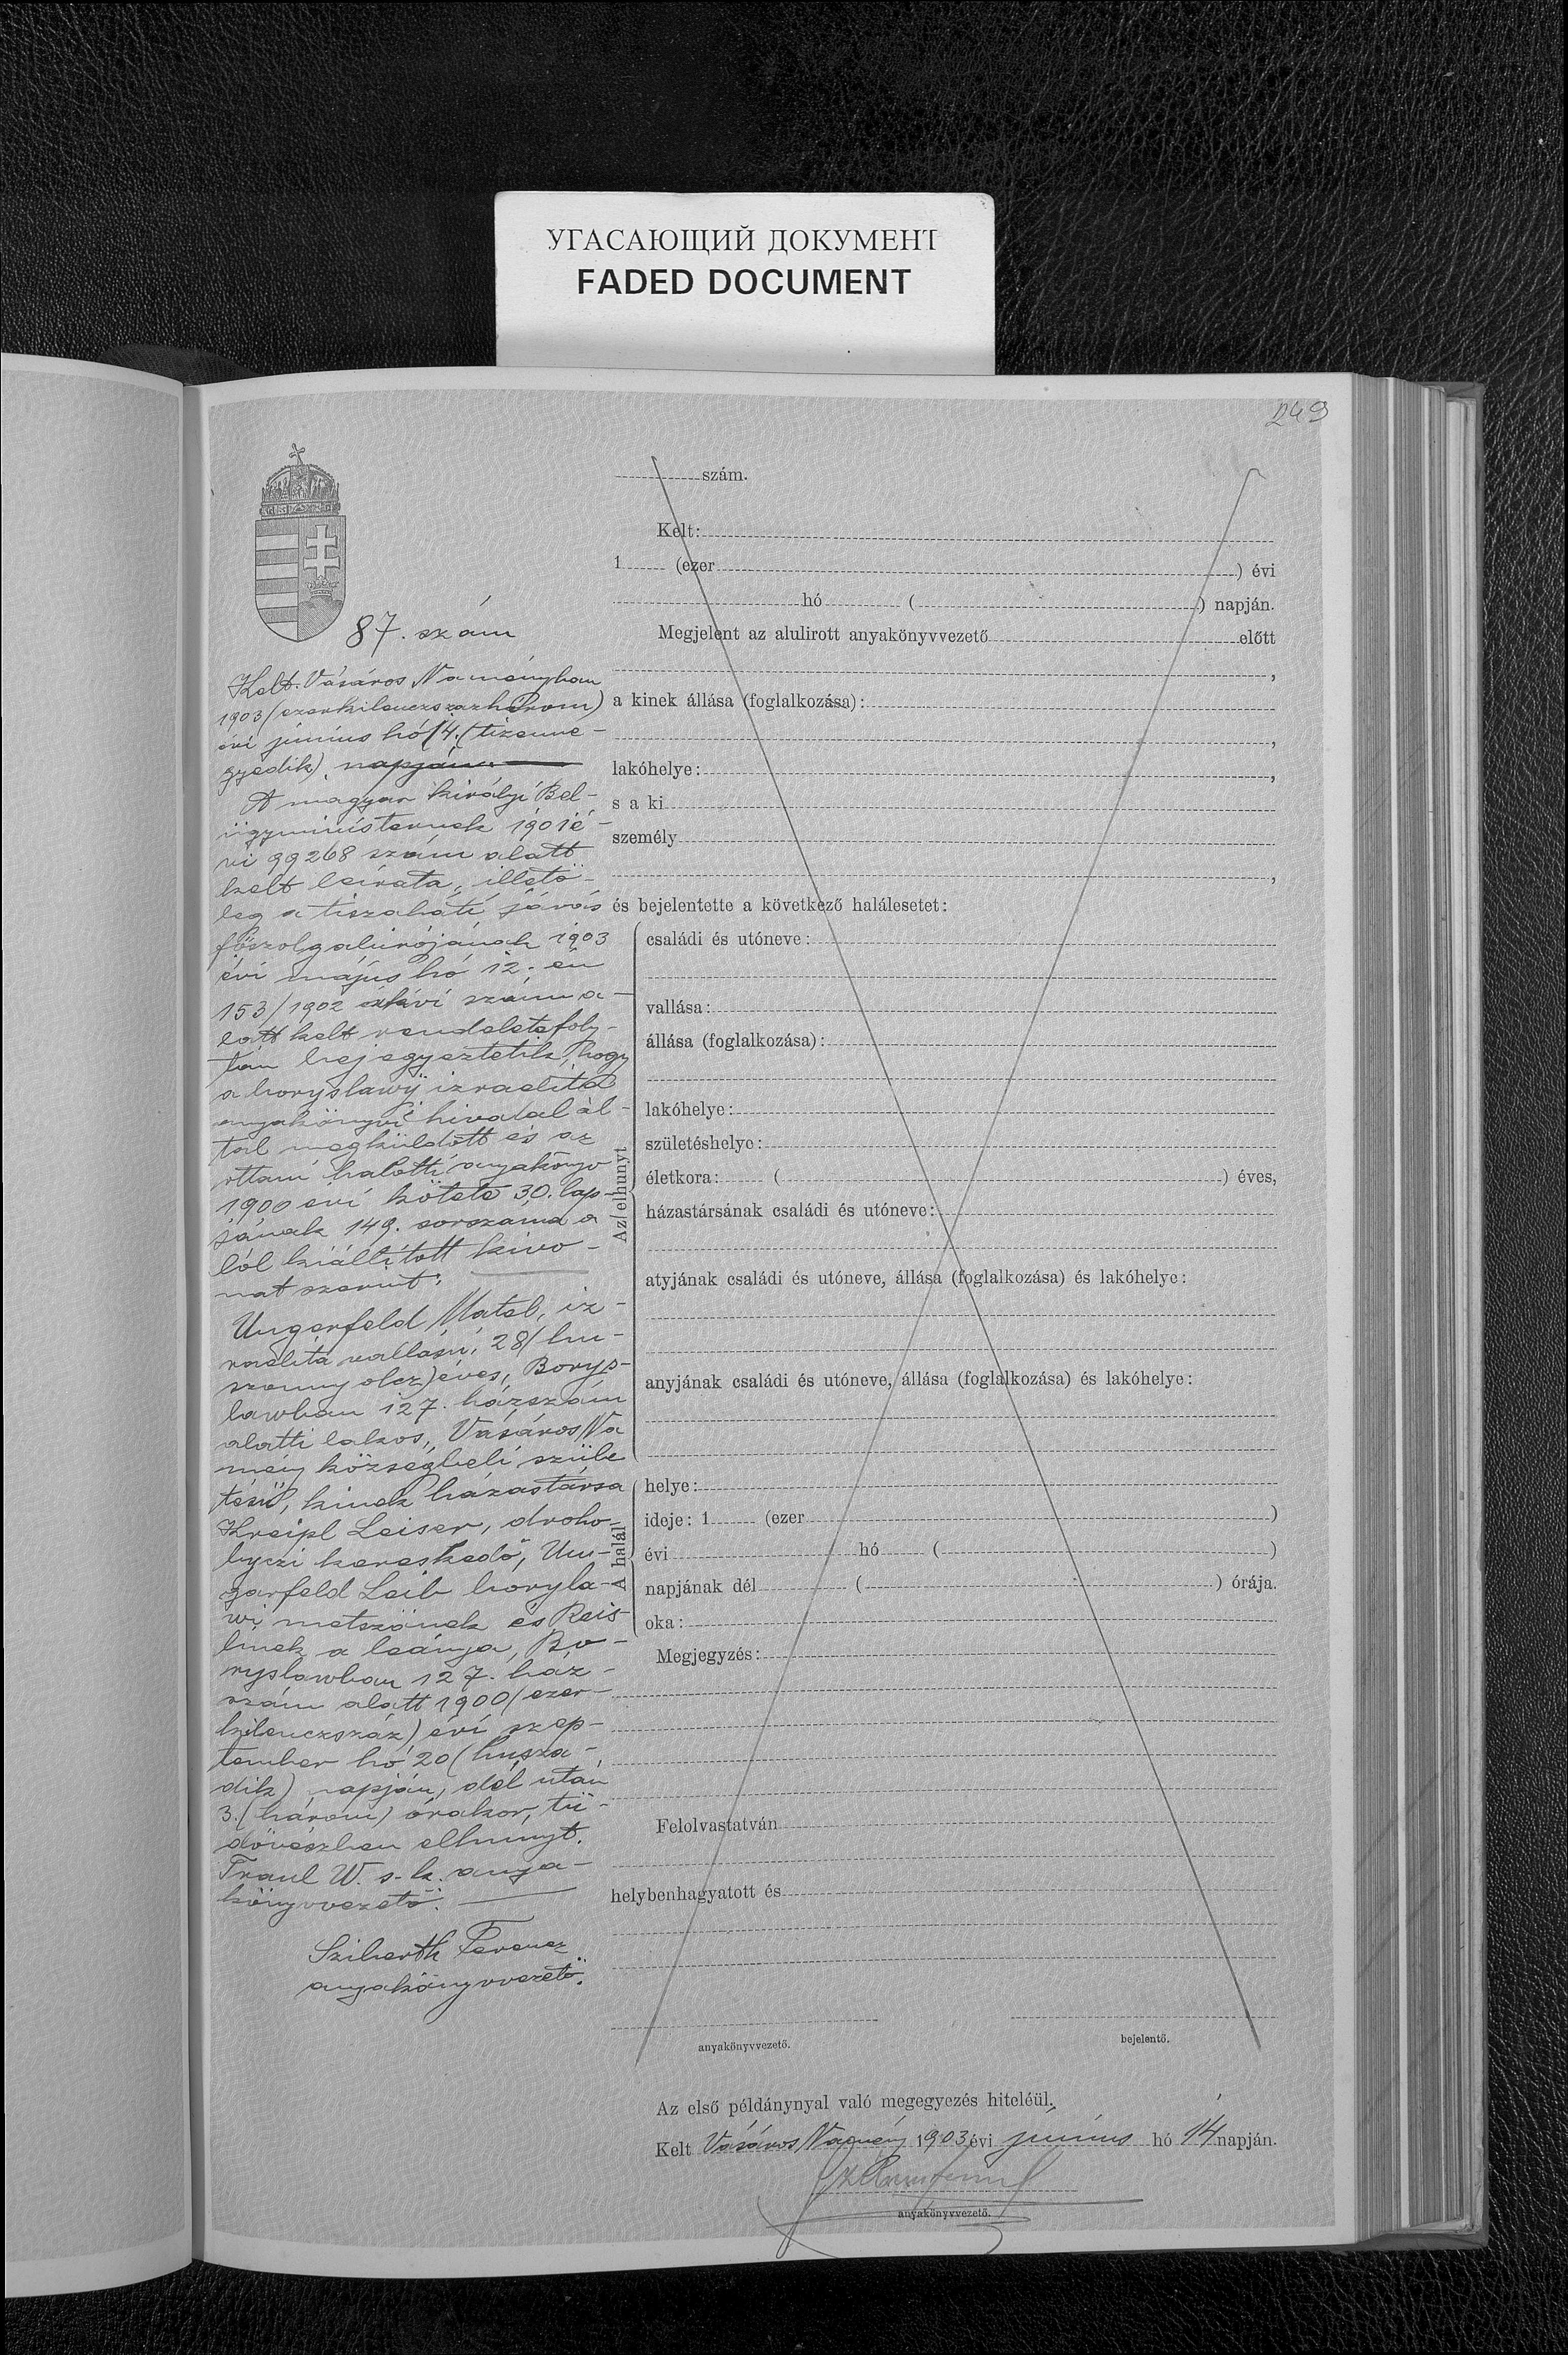 УГАСАЮЩИЙ ДОКУМЕНТ
FADED DOCUMENT
249
87. szám
Kelt. Vásáros Naményban
1903 (ezerkilenczszázhárom)
évi június hó 14. (tizenne-
gyedik) napján.
A magyar királyi Bel-
ügyministernek 1901 é-
vi 99268 szám alatt
kelt leírata, illető-
leg a tiszaháti járás
főszolgabírójának 1903
évi május hó 12.-én
153/1902 szám a-
latt kelt rendelete foly-
tán bejegyeztetik, hogy
a boryslawi izraelita
anyakönyvi hivatal ál-
tal megküldött és az
ottani halotti anyakönyv
1900 évi kötete 30. lap-
jának 149. sorszáma a
lól kiállított kivo-
nat szerint:
Ungerfeld Matel, iz-
raelita vallású, 28 (hu-
szonnyolcz) éves, Borys-
lawban 127. házszám
alatti lakos, Vásáros Na
mény községbeli szüle
tésű, kinek házastársa
Kreipl Leiser, droho-
byczi kereskedő, Un-
gerfeld Leib borysla-
wi metszőnek és Reis-
linek a leánya, Bo-
ryslawban 127. ház-
szám alatt 1900 (ezer-
kilenczszáz) évi szep-
tember hó 20 (husza-
dik) napján, dél után
3. (három) órakor, tü-
dővészben elhunyt.
Traul W. s. k. anya-
könyvvezető.
Sziberth Ferencz
anyakönyvvezető.
szám.
Kelt:
1 (ezer ) évi
hó ( ) napján.
Megjelent az alulirott anyakönyvvezető előtt
,
a kinek állása (foglalkozása):
,
lakóhelye: ,
s a ki
személy
,
és bejelentette a következő halálesetet:
Az elhunyt
családi és utóneve:
vallása:
állása (foglalkozása):
lakóhelye:
születéshelye:
életkora: ( ) éves,
házastársának családi és utóneve:
atyjának családi és utóneve, állása (foglalkozása) és lakóhelye:
anyjának családi és utóneve, állása (foglalkozása) és lakóhelye:
A halál
helye:
ideje: 1 (ezer )
évi hó ( )
napjának dél ( ) órája.
oka:
Megjegyzés:
Felolvastatván
helybenhagyatott és
anyakönyvvezető. bejelentő.
Az első példánynyal való megegyezés hiteléül.
Kelt Vásáros Namény 1903 évi június hó 14 napján.
anyakönyvvezető.